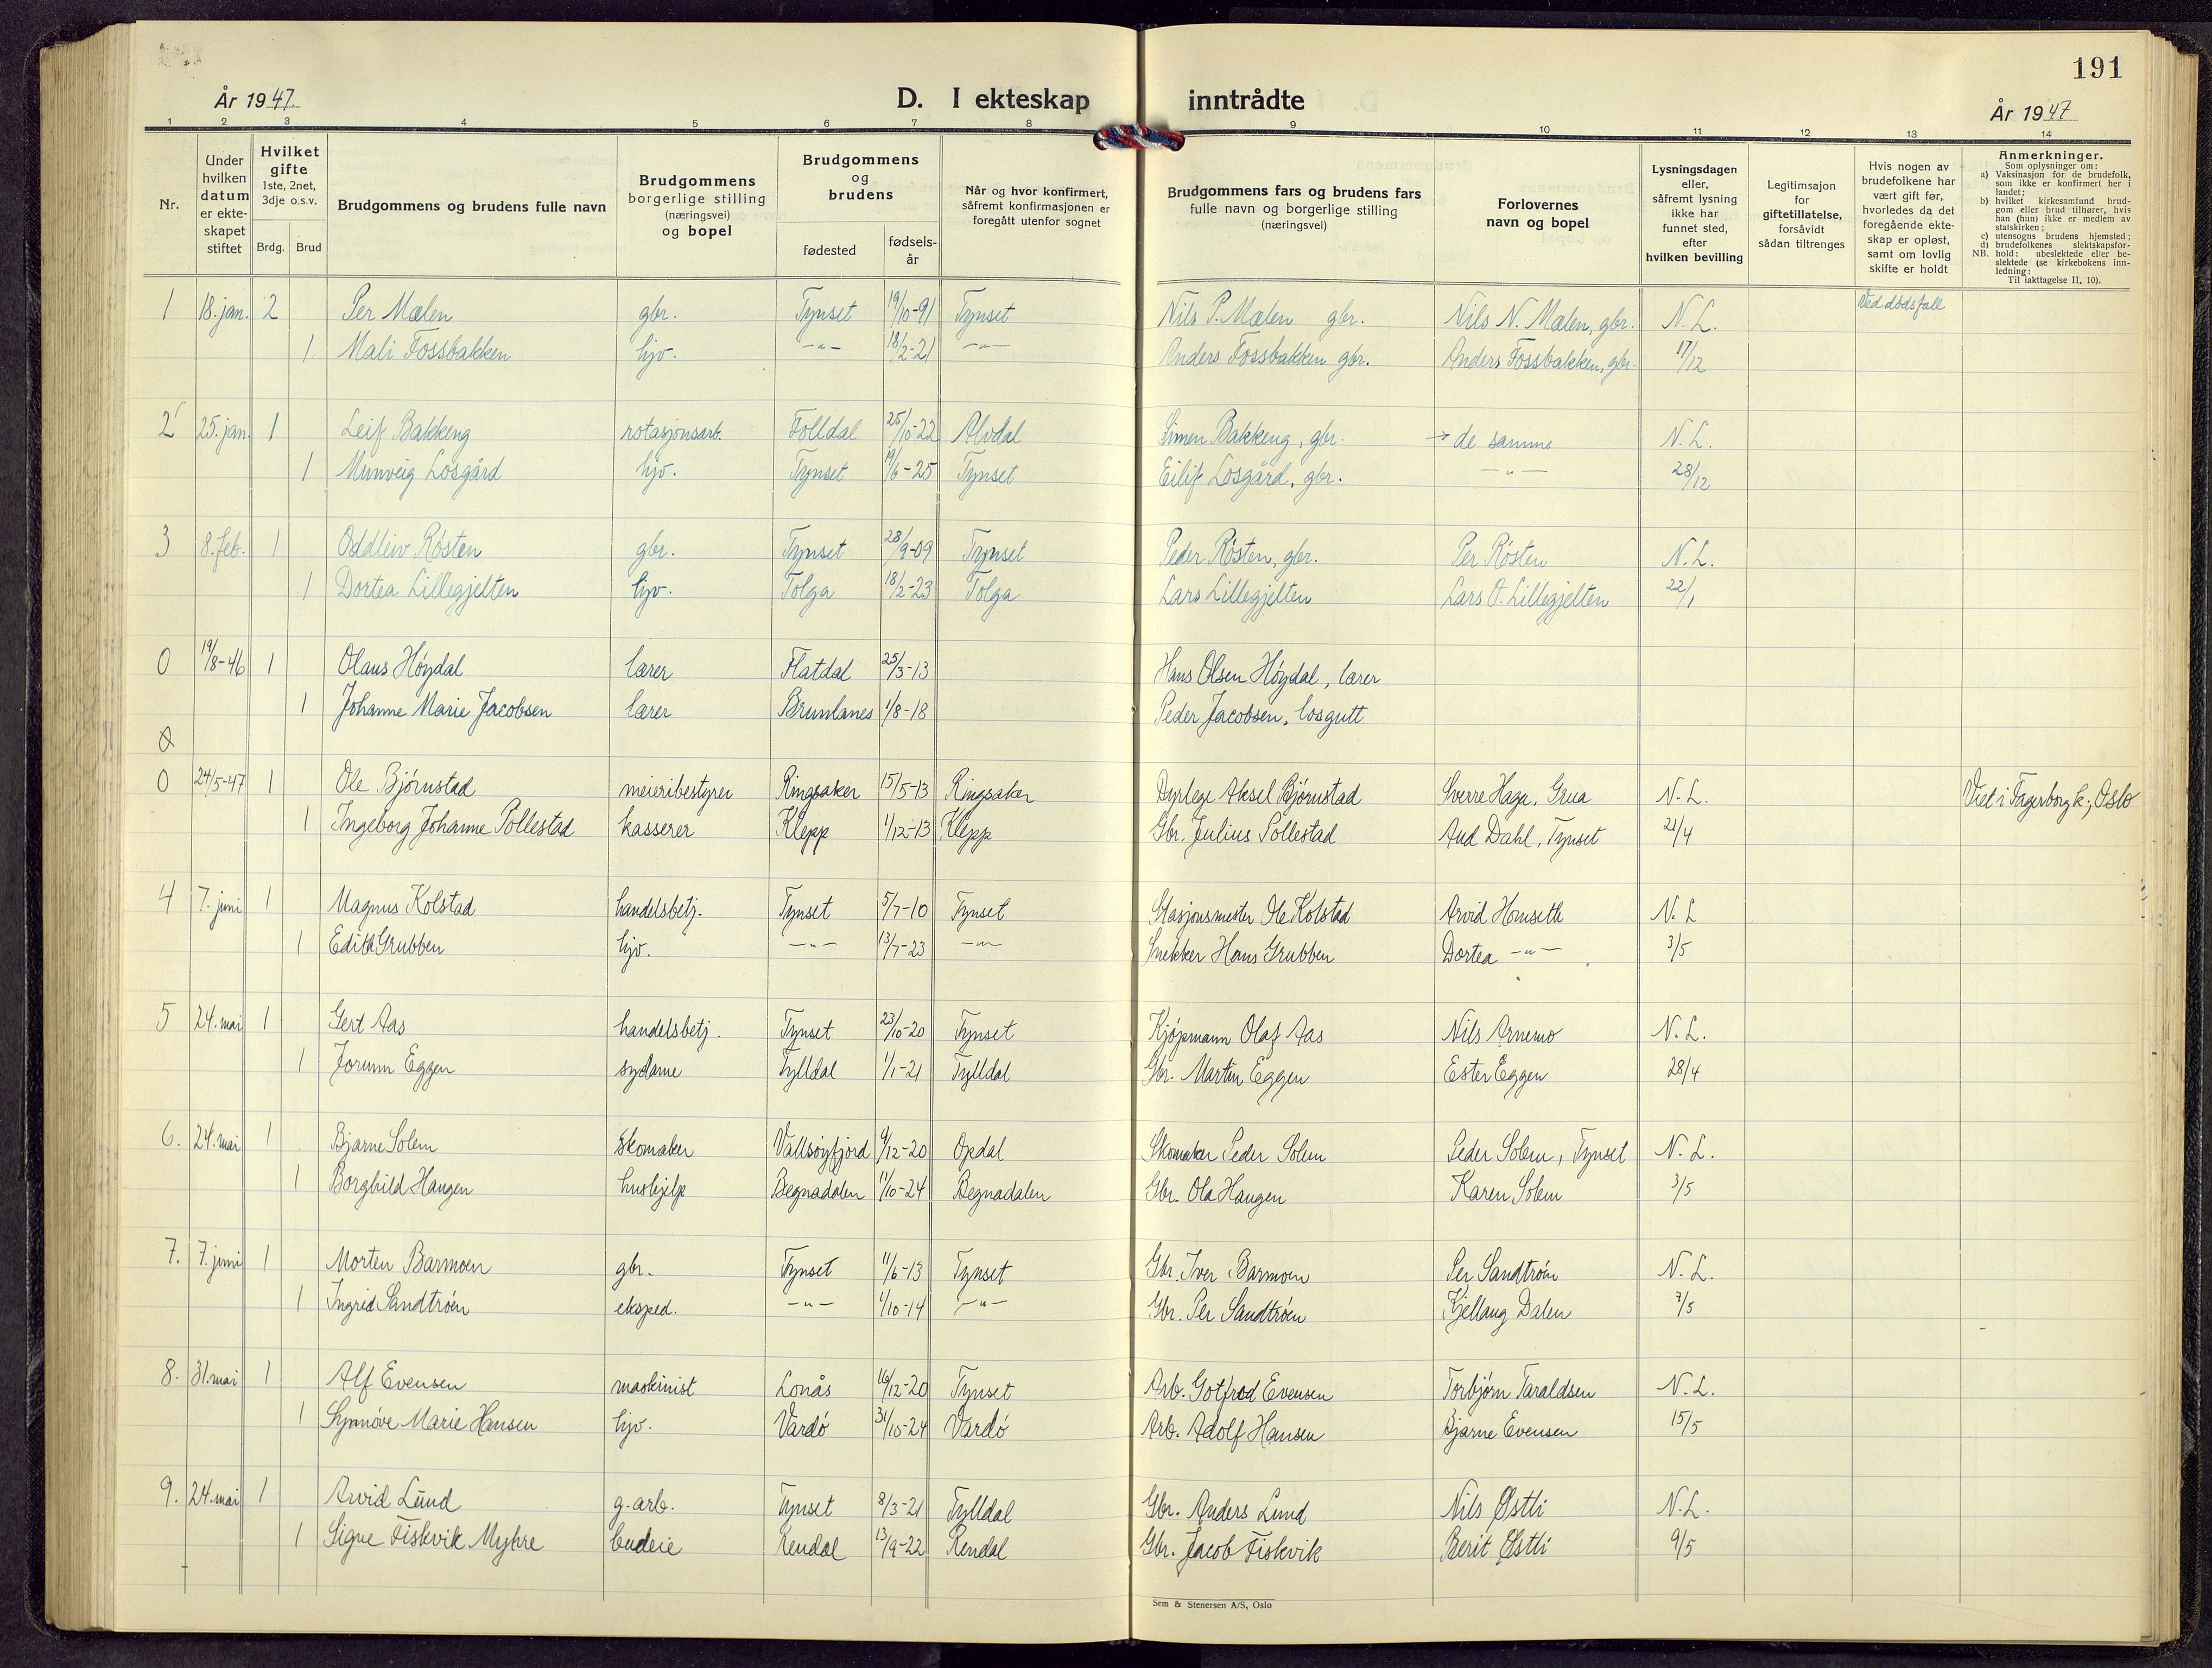 191
År 1947.
D. I ekteskap inntrådte
År 1947
1 2 3 4 5 6 7 8 9 10 11 12 13 14
Nr.
Under hvilken datum er ekteskapet stiftet
Hvilket gifte 1ste, 2net, 3dje o.s.v.
Brdg. Brud
Brudgommens og brudens fulle navn
Brudgommens borgerlige stilling (næringsvei) og bopel
Brudgommens og brudens
fødested
fødselsår
Når og hvor konfirmert, såfremt konfirmasjonen er foregått utenfor sognet
Brudgommens fars og brudens fars fulle navn og borgerlige stilling (næringsvei)
Forlovernes navn og bopel
Lysningsdagen eller, såfremt lysning ikke har funnet sted, efter hvilken bevilling
Legitimsajon for giftetillatelse, forsåvidt sådan tiltrenges
Hvis nogen av brudefolkene har vært gift før, hvorledes da det foregående ekteskap er opløst, samt om lovlig skifte er holdt
Anmerkninger.
Som oplysninger om:
a) Vaksinasjon for de brudefolk, som ikke er konfirmert her i landet;
b) hvilket kirkesamfund brudgom eller brud tilhører, hvis han (hun) ikke er medlem av statskirken;
c) utensogns brudens hjemsted;
d) brudefolkenes slektskapsforhold: ubeslektede eller beslektede (se kirkebokens innledning:
NB.
Til iakttagelse II, 10).
1 18. jan. 2 Per Mælen gbr. Tynset 19/10-91 Tynset Nils P. Mælen gbr. Nils N. Mælen, gbr. N.L. Ved dødsfall
1 Mali Fossbakken hjv. -"- 18/2-21 -"- Anders Fossbakken gbr. Anders Fossbakken, gbr. 17/12
2 25. jan. 1 Leif Bakkeng rotasjonsarb. Folldal 25/10-22 Alvdal Simen Bakkeng, gbr. → de samme N.L.
1 Munveig Losgård hjv. Tynset 19/6-25 Tynset Eilif Losgård, gbr. -"- 28/12
3 8. feb. 1 Oddleiv Røsten gbr. Tynset 28/9-09 Tynset Peder Røsten, gbr. Per Røsten N.L.
1 Dortea Lillegjelten hjv. Tolga 18/2-23 Tolga Lars Lillegjelten Lars O. Lillegjelten 22/1
0 19/8-46 1 Olaus Høydal lærer Flatdal 25/3-13 Hans Olsen Høydal, lærer
1 Johanne Marie Jacobsen lærer Brunlanes 1/8-18 Peder Jacobsen, losgutt
0 24/5-47 1 Ole Bjørnstad meieribestyrer Ringsaker 15/5-13 Ringsaker Dyrlege Aksel Bjørnstad Sverre Haga, Grua N.L. Viet i Fagerborg k., Oslo
1 Ingeborg Johanne Pollestad kasserer Klepp 1/12-13 Klepp Gbr. Julius Pollestad Aud Dahl, Tynset 21/4
4 7. juni 1 Magnus Kolstad handelsbetj. Tynset 5/7-10 Tynset Stasjonsmester Ole Kolstad Arvid Homseth N.L
1 Edith Grubben hjv. -"- 13/7-23 -"- Snekker Hans Grubben Dortea -"- 3/5
5 24. mai 1 Gert Aas handelsbetj. Tynset 23/10-20 Tynset Kjøpmann Olaf Aas Nils Arnemo N.L.
1 Jorunn Eggen sydame Tylldal 1/1-21 Tylldal Gbr. Martin Eggen Ester Eggen 28/4
6. 24. mai 1 Bjarne Solem skomaker Vallsøyfjord 9/12-20 Opdal Skomaker Peder Solem Peder Solem, Tynset N.L.
1 Borghild Haugen hushjelp Begnadalen 11/10-24 Begnadalen Gbr. Ola Haugen Karen Solem 3/5
7. 7. juni 1 Morten Barmoen gbr. Tynset 11/6-13 Tynset Gbr. Iver Barmoen Per Sandtrøen N.L.
1 Ingrid Sandtrøen eksped. -"- 1/10-14 -"- Gbr. Per Sandtrøen Kjellaug Dalen 7/5
8. 31. mai 1 Alf Evensen maskinist Lonås 16/12-20 Tynset Arb. Gotfred Evensen Torbjørn Taraldsen N.L.
1 Synnøve Marie Hansen hjv. Vardø 31/10-24 Vardø Arb. Adolf Hansen Bjarne Evensen 15/5
9. 24. mai 1 Arvid Lund g.arb. Tynset 8/3-21 Tylldal Gbr. Anders Lund Nils Østli N.L.
1 Signe Fiskvik Myhre budeie Rendal 13/9-22 Rendal Gbr. Jacob Fiskvik Berit Østli 9/5
Sem & Stenersen A/S, Oslo